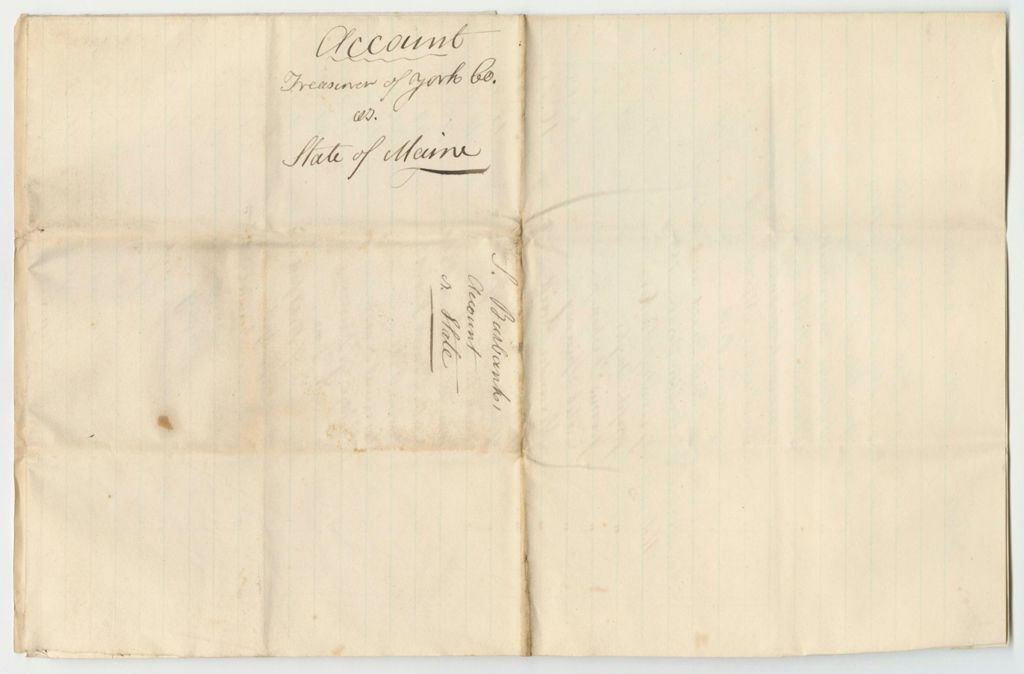 Account
Treasurer of York Co.
vs.
State of Maine
S. Burbank,
Account
v. State